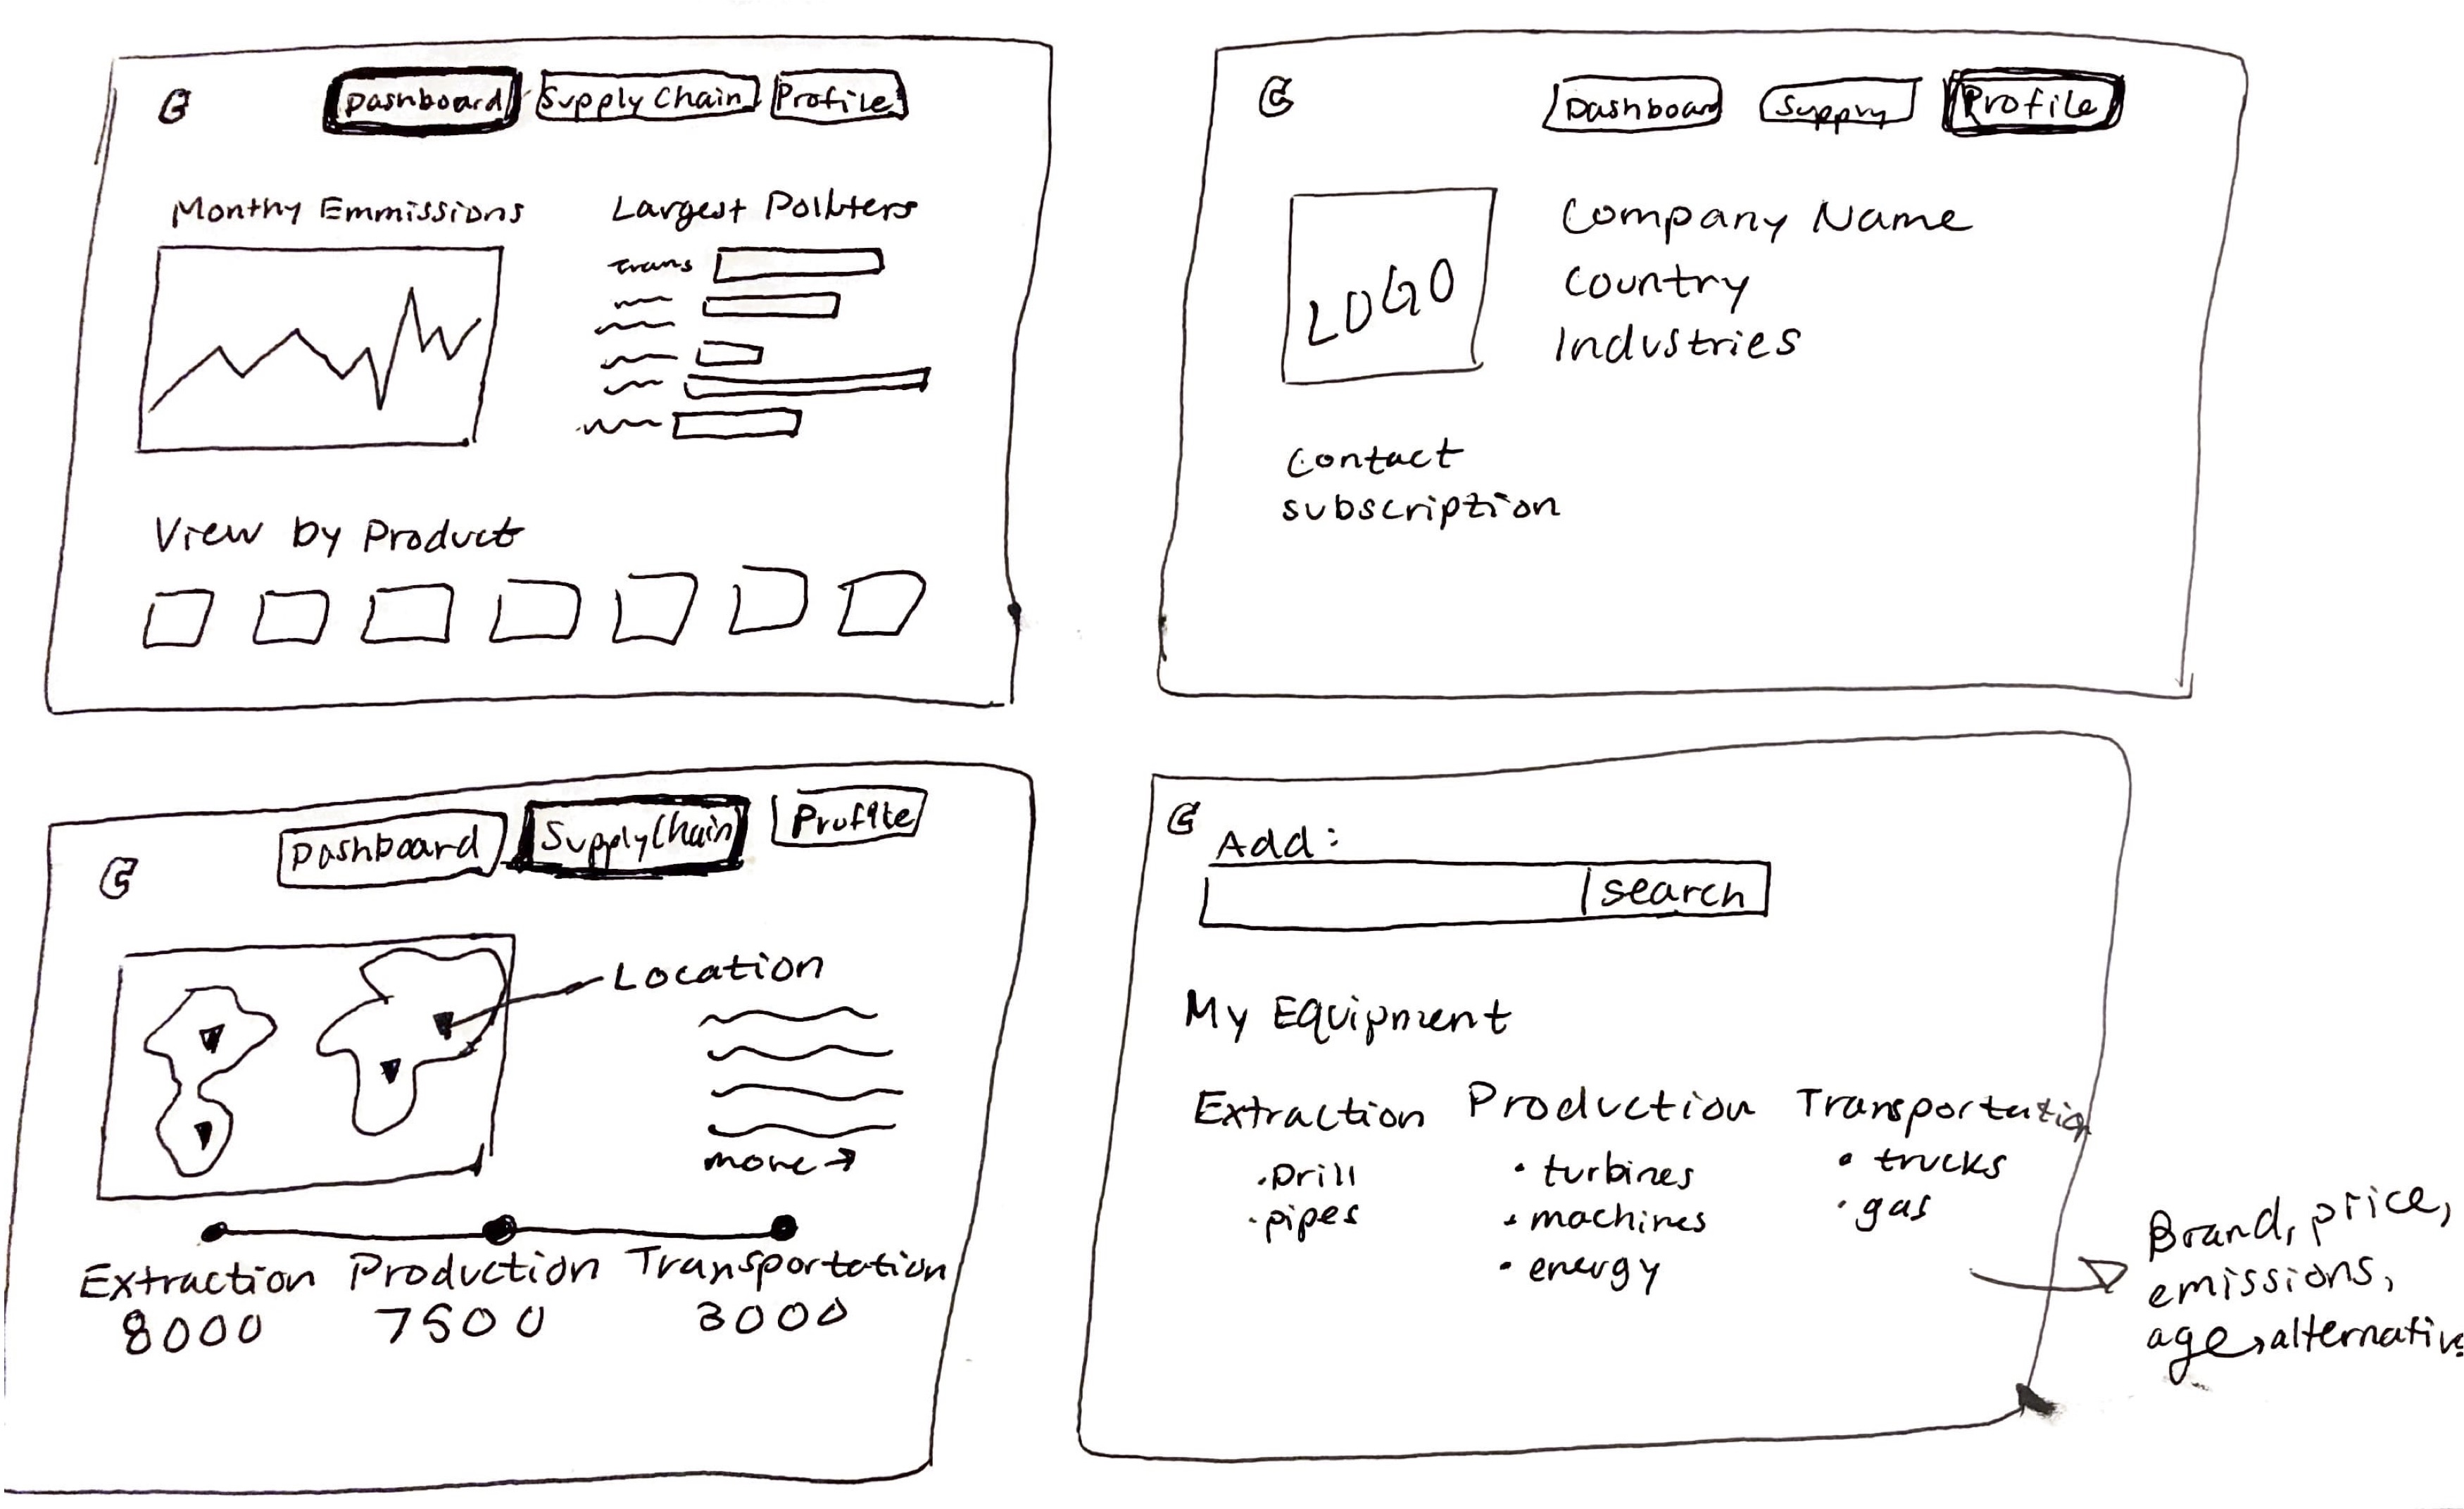 G
Dashboard
Supply Chain
Profile
Monthy Emmissions
Largest Pollvters
trans
View by Product
G
Dashboar
Supply
Profile
LOGO
Company Name
Country
Industries
Contact
subscription
G
Dashboard
Supply Chain
Profile
Location
more →
Extraction
Production
Transportation
8000
7500
3000
G
Add:
search
My Equipment
Extraction
• Drill
• pipes
Production
• turbines
• machines
• energy
Transportation
• trucks
• gas
Brand, price,
emissions,
age, alternative